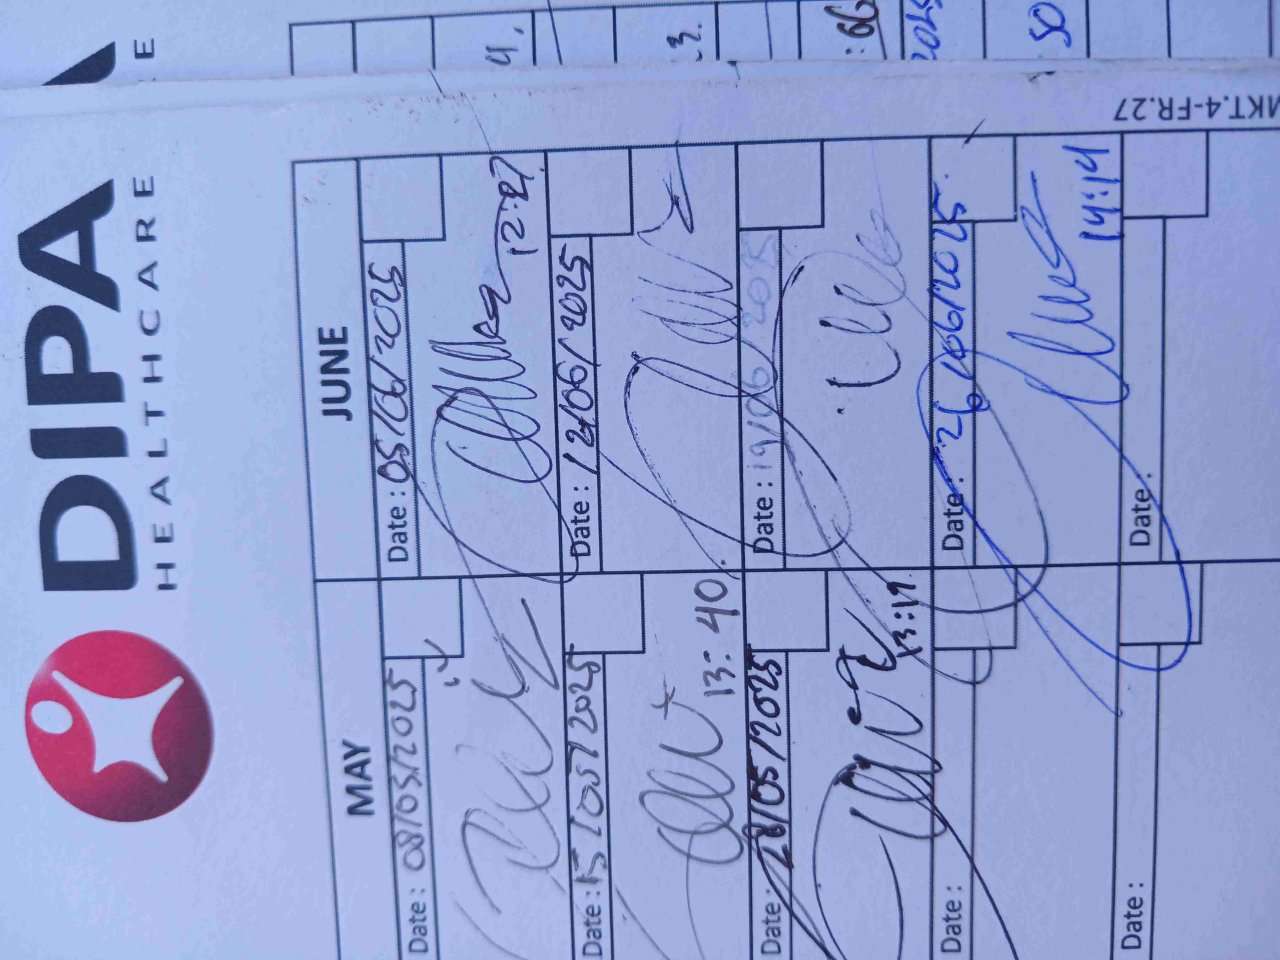 DIPA
HEALTHCARE
MKT.4-FR.27
MAY
JUNE
Date : 08/05/2025
Date : 05/06/2025
12:27
Date : 15/05/2025
13:40
Date : 12/06/2025
Date : 28/05/2025
13:19
Date : 19/06/2025
Date :
Date : 26/06/2025
14:14
Date :
Date :